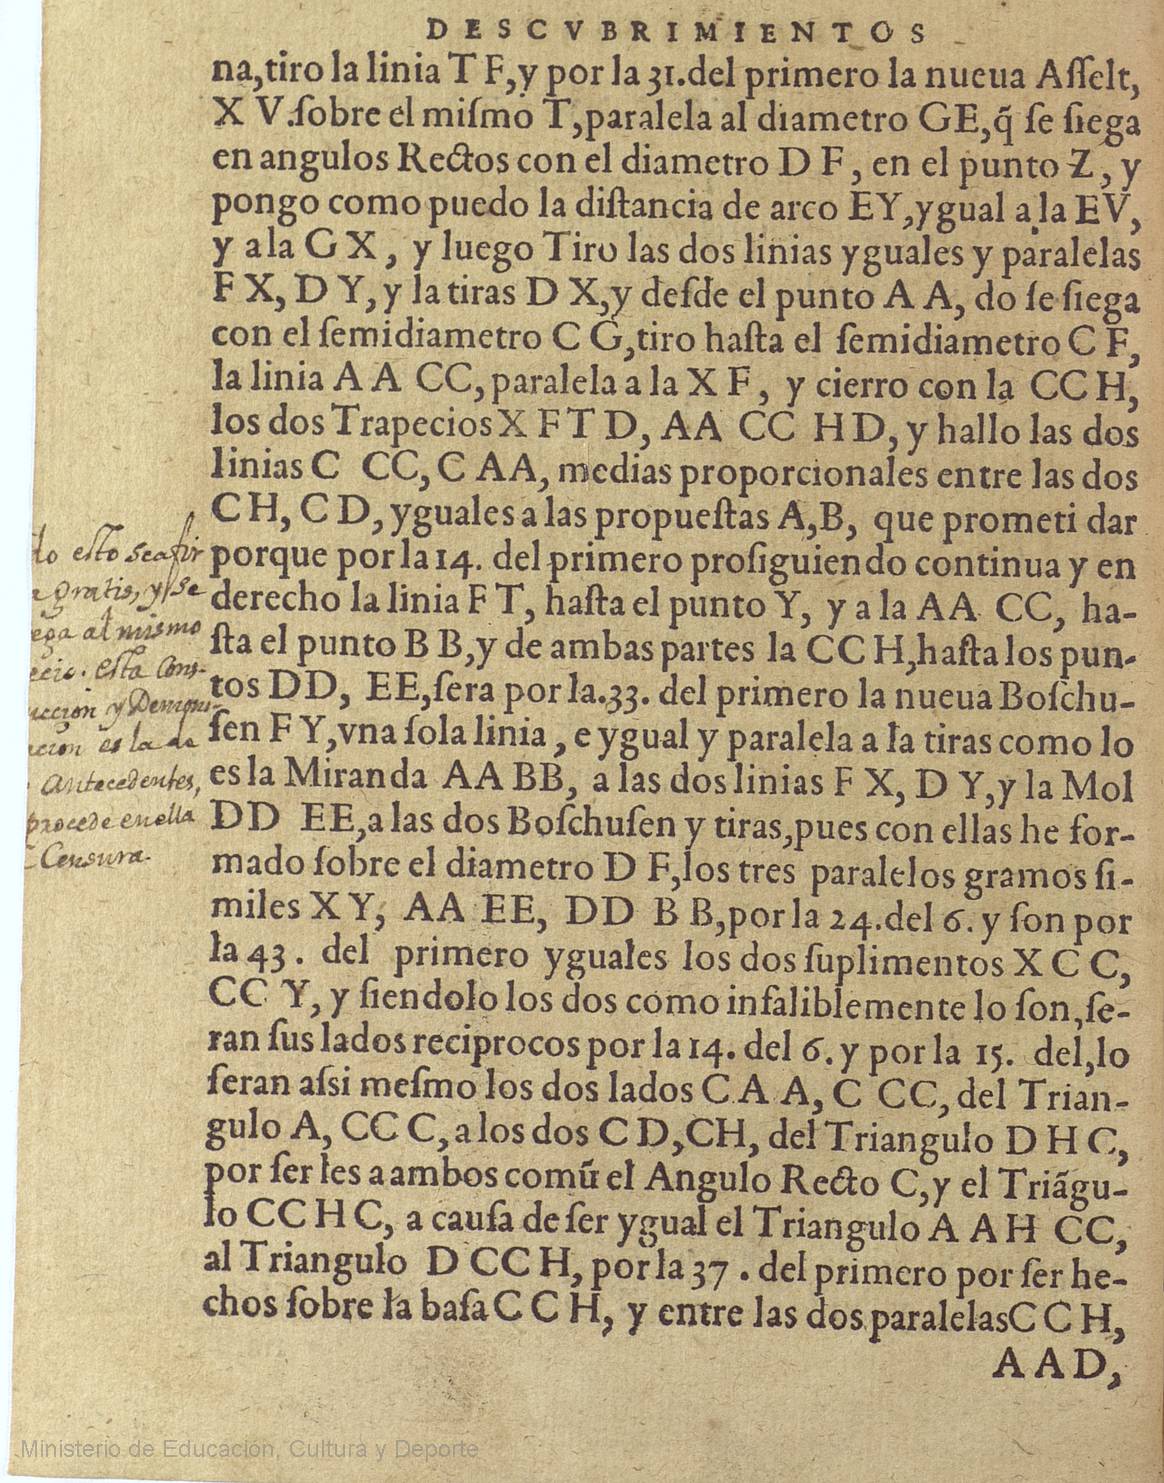 DESCVBRIMIENTOS
na,tiro la linia T F,y por la 31.del primero la nueua Aſſelt,
X V.ſobre el miſmo T,paralela al diametro GE,q̃ ſe ſiega
en angulos Rectos con el diametro D F, en el punto Z, y
pongo como puedo la diſtancia de arco EY,ygual a la EV,
y a la G X, y luego Tiro las dos linias yguales y paralelas
F X, D Y, y la tiras D X,y deſde el punto A A, do ſe ſiega
con el ſemidiametro C G,tiro haſta el ſemidiametro C F,
la linia A A CC, paralela a la X F, y cierro con la CC H,
los dos Trapecios X F T D, AA CC HD, y hallo las dos
linias C CC, C AA, medias proporcionales entre las dos
C H, C D, yguales a las propueſtas A,B, que prometi dar
porque por la 14. del primero proſiguiendo continua y en
derecho la linia F T, haſta el punto Y, y a la AA CC, ha-
ſta el punto B B,y de ambas partes la CC H,haſta los pun-
tos DD, EE,ſera por la.33. del primero la nueua Boſchu-
ſen F Y,vna ſola linia, e ygual y paralela a la tiras como lo
es la Miranda AA BB, a las dos linias F X, D Y,y la Mol
DD EE,a las dos Boſchuſen y tiras,pues con ellas he for-
mado ſobre el diametro D F,los tres paralelos gramos ſi-
miles X Y, AA EE, DD B B,por la 24.del 6. y ſon por
la 43. del primero yguales los dos ſuplimentos X C C,
CC Y, y ſiendolo los dos como infaliblemente lo ſon,ſe-
ran ſus lados reciprocos por la 14. del 6. y por la 15. del,lo
ſeran aſsi meſmo los dos lados C A A, C CC, del Trian-
gulo A, CC C, a los dos C D,CH, del Triangulo D H C,
por ſer les a ambos comũ el Angulo Recto C,y el Triãgu-
lo CC H C, a cauſa de ſer ygual el Triangulo A A H CC,
al Triangulo D CC H, por la 37. del primero por ſer he-
chos ſobre la baſa C C H, y entre las dos paralelas C C H,
A A D,
esto se afir
gratis, y se
al mismo
esta Cons-
y Demons-
es la de
Antecedentes,
procede en ella
Censura.
Ministerio de Educación, Cultura y Deporte